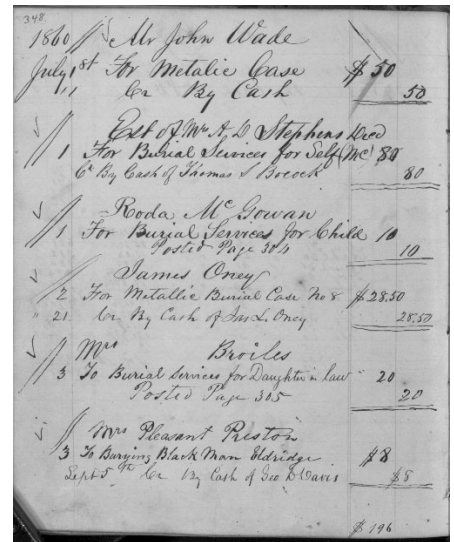 348
1860 // Mr John Wade
July 1st For Metalic Case $50
" Cr By Cash 50
Est of Mr A. D Stephens Decd
1 For Burial Services for Self (MC) 80
Cr By Cash of Thomas S Bocock 80
Roda McGowan
1 For Burial Services for Child 10
Posted Page 304 10
James Oney
2 For Metallic Burial Case No 8 $28.50
" 21 Cr By Cash of Jas L. Oney 28.50
Mrs Broiles
3 To Burial Services for Daughter in Law 20
Posted Page 305 20
Mrs Pleasant Preston
3 To Burying Black Man Eldridge $8
Sept 5th Cr By Cash of Geo D Davis $8
$196